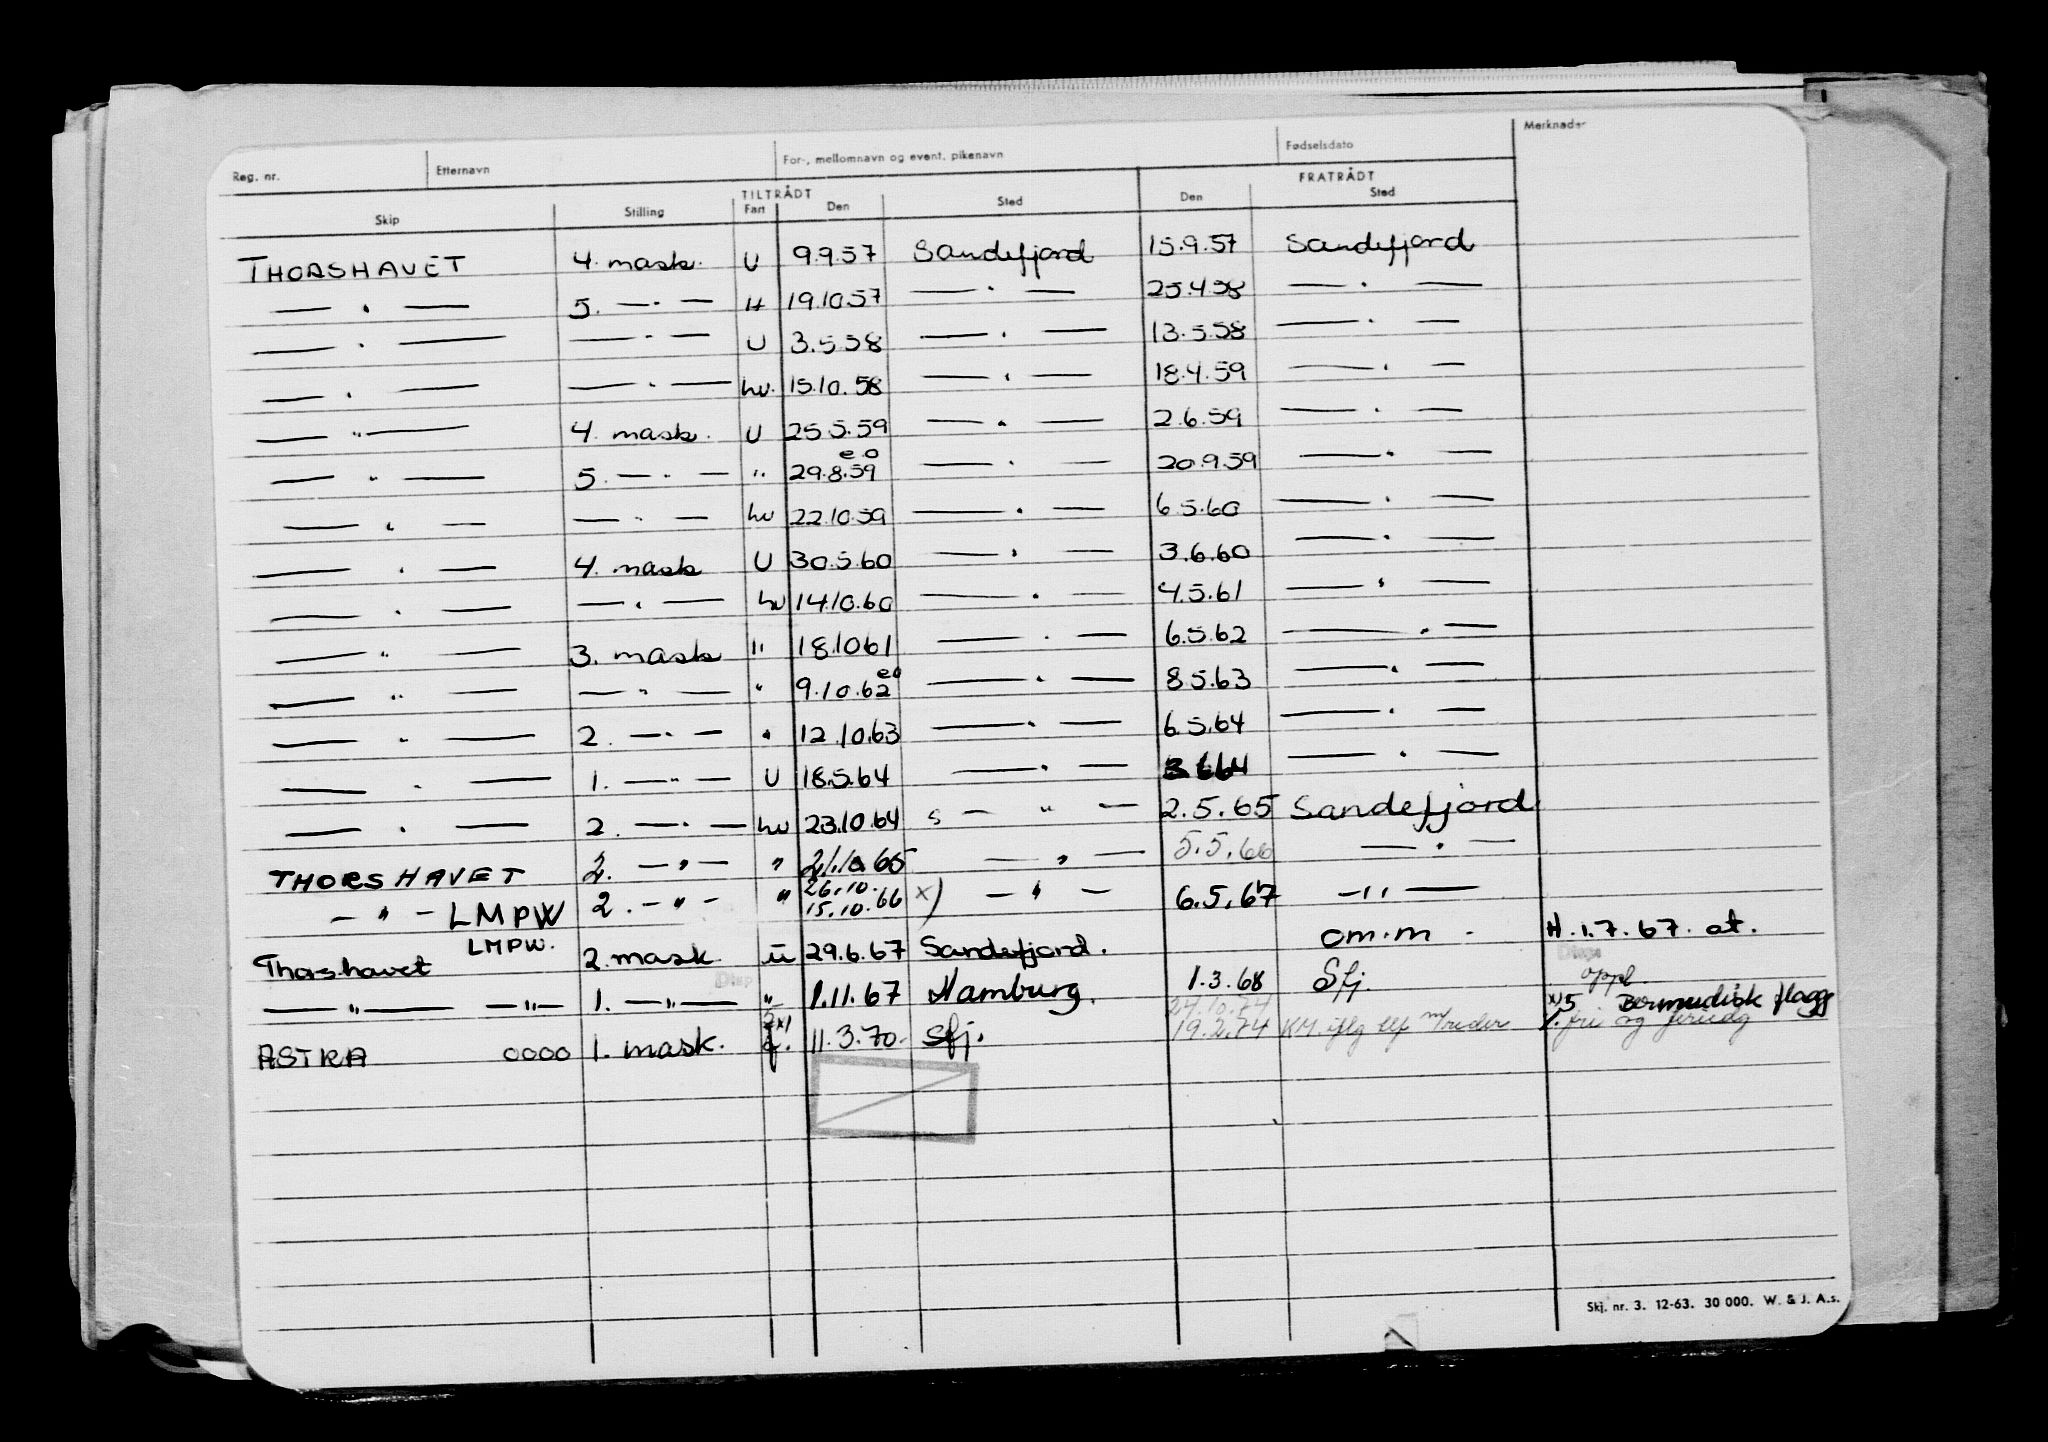 Reg. nr. Etternavn For-, mellomnavn og event. pikenavn Fødselsdato Merknader
TILTRÅDT FRATRÅDT
Skip Stilling Fart Den Sted Den Sted
THORSHAVET 4. mask. U 9.9.57 Sandefjord 15.9.57 Sandefjord
— " — 5. — " — H 19.10.57 — " — 25.4.58 — " —
— " — — " — U 3.5.58 — " — 13.5.58 — " —
— " — — " — hv. 15.10.58 — " — 18.4.59 — " —
— " — 4. mask. U 25.5.59 — " — 2.6.59 — " —
— " — 5. — " — " 29.8.59 e.o — " — 20.9.59 — " —
— " — — " — hv 22.10.59 — " — 6.5.60 — " —
— " — 4. mask U 30.5.60 — " — 3.6.60 — " —
— " — — " — hv 14.10.60 — " — 4.5.61 — " —
— " — 3. mask " 18.10.61 — " — 6.5.62 — " —
— " — — " — " 9.10.62 eo — " — 8.5.63 — " —
— " — 2. — " — " 12.10.63 — " — 6.5.64 — " —
— " — 1. — " — U 18.5.64 — " — 3.6.64 — " —
— " — 2. — " — hv 23.10.64 s — " — 2.5.65 Sandefjord
THORSHAVET 2. — " — " 21.10.65 — " — 5.5.66 — " —
26.10.
— " — LMPW 2. — " — " 15.10.66 x) — " — 6.5.67 — " —
LMPW.
Thorshavet 2. mask. u 29.6.67 Sandefjord. om.m. H. 1.7.67. at.
— " — — " — 1. — " — " 1.11.67 Hamburg. 1.3.68 Sfj. oppl.
24.10.74 Bermudisk flagg
ASTRA 0000 1. mask. f. 11.3.70. Sfj. 19.2.74 KM. iflg tlf m/reder fri og
Skj. nr. 3. 12-63. 30 000. W. & J. A.s.